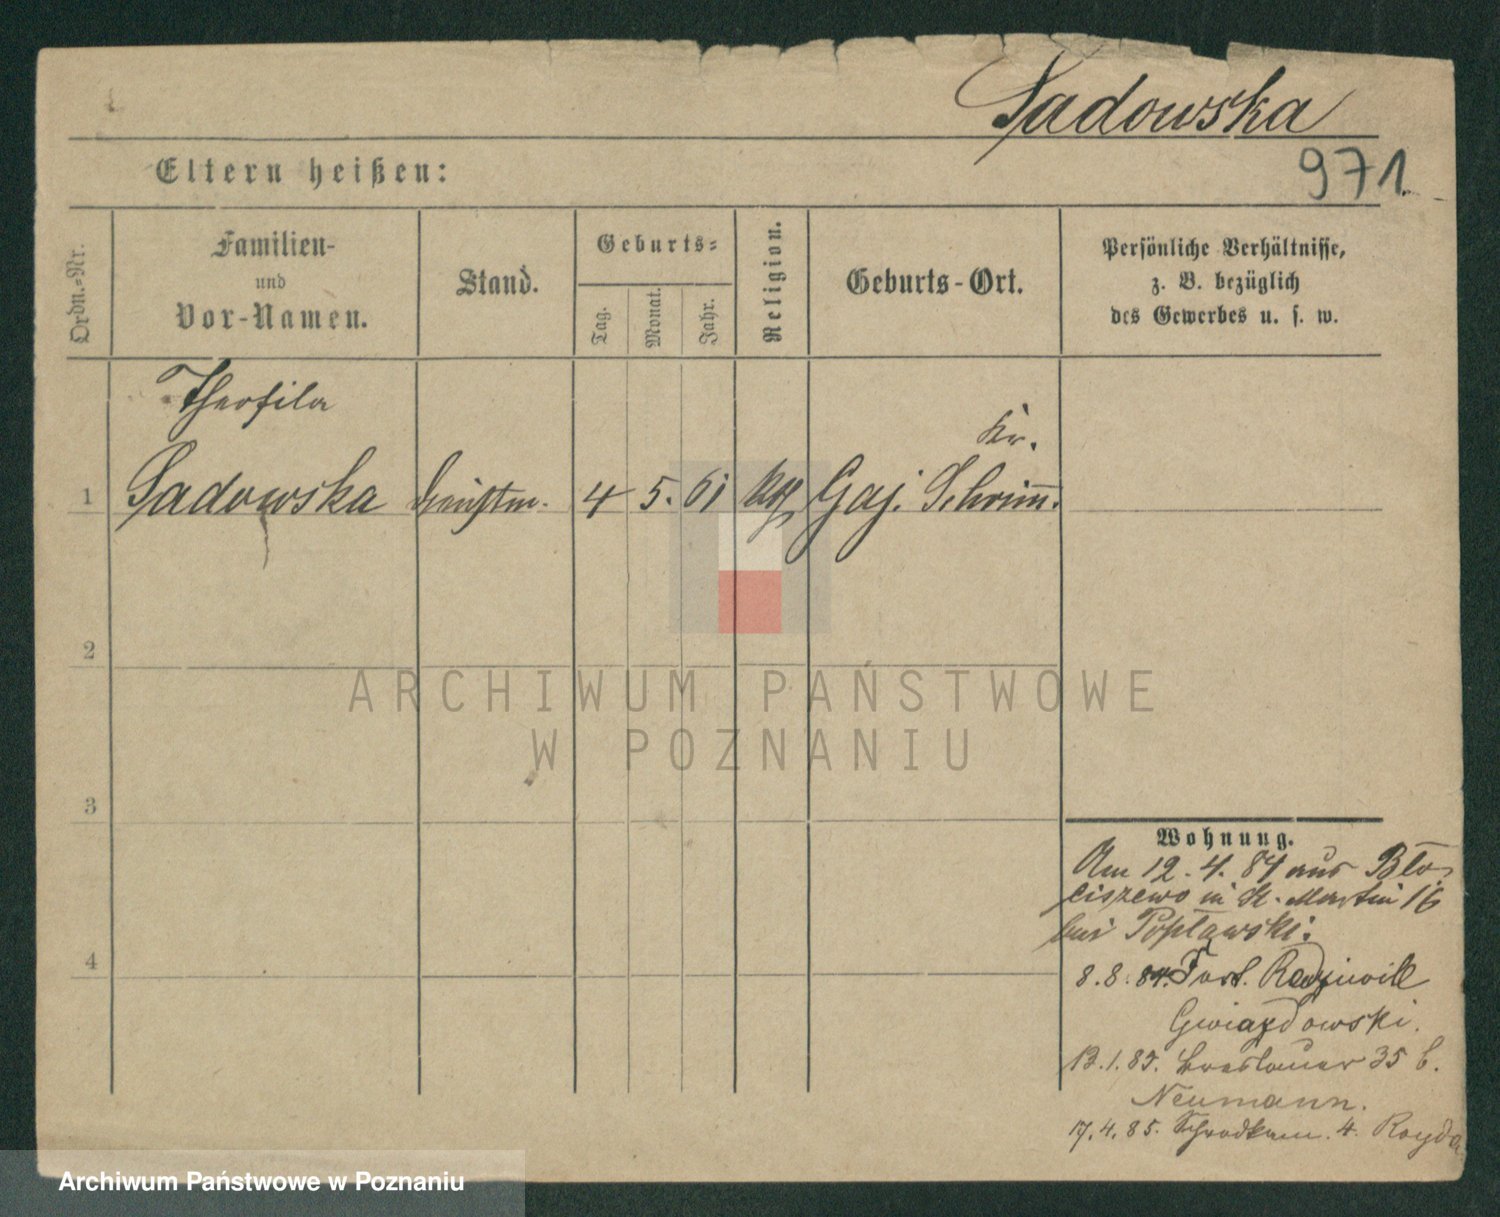 Sadowska
971.
Eltern heißen:
Ordn.-Nr.
Familien-
und
Vor-Namen.
Stand.
Geburts-
Tag.
Monat.
Jahr.
Religion.
Geburts-Ort.
Persönliche Verhältnisse,
z. B. bezüglich
des Gewerbes u. s. w.
Theofila
Kr.
1 Sadowska 4 5. 61 Gaj. Schrimm.
2
3
4
Wohnung.
Am 12. 4. 84 aus Bło-
ciszewo in St. Martin 16
bei Popławski.
8. 8. 84. Radziwill
Gwiazdowski.
13. 1. 85. Breslauer 35 b.
Neumann.
17. 4. 85. 4.
ARCHIWUM PAŃSTWOWE
W POZNANIU
Archiwum Państwowe w Poznaniu